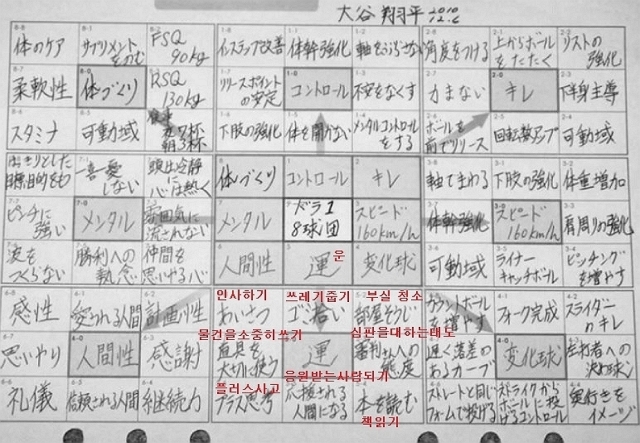 大谷 翔平 2010 12.6
体のケア サプリメントをのむ FSQ 90kg インステップ改善 体幹強化 軸をぶらさない 角度をつける 上からボールをたたく リストの強化
柔軟性 体づくり RSQ 130kg リリースポイントの安定 コントロール 不安をなくす 力まない キレ 下半身主導
スタミナ 可動域 夜7杯 朝3杯 下肢の強化 体を開かない メンタルコントロールをする ボールを前でリリース 回転数アップ 可動域
はっきりとした目標目的をもつ 一喜一憂しない 頭は冷静に心は熱く 体づくり コントロール キレ 軸でまわる 下肢の強化 体重増加
ピンチに強い メンタル 雰囲気に流されない メンタル ドラ1 8球団 スピード 160km/h 体幹強化 スピード 160km/h 肩周りの強化
波をつくらない 勝利への執念 仲間を思いやる心 人間性 運 운 変化球 可動域 ライナーキャッチボール ピッチングを増やす
인사하기 쓰레기줍기 부실 청소
感性 愛される人間 計画性 あいさつ ゴミ拾い 部屋そうじ カウントボールを増やす フォーク完成 スライダーのキレ
물건을소중히쓰기 심판을대하는태도
思いやり 人間性 感謝 道具を大切に使う 運 審判さんへの態度 遅く落差のあるカーブ 変化球 左打者への決め球
플러스사고 응원받는사람되기
礼儀 信頼される人間 継続力 プラス思考 応援される人間になる 本を読む ストレートと同じフォームで投げる ストライクからボールに投げるコントロール 奥行きをイメージ
책읽기